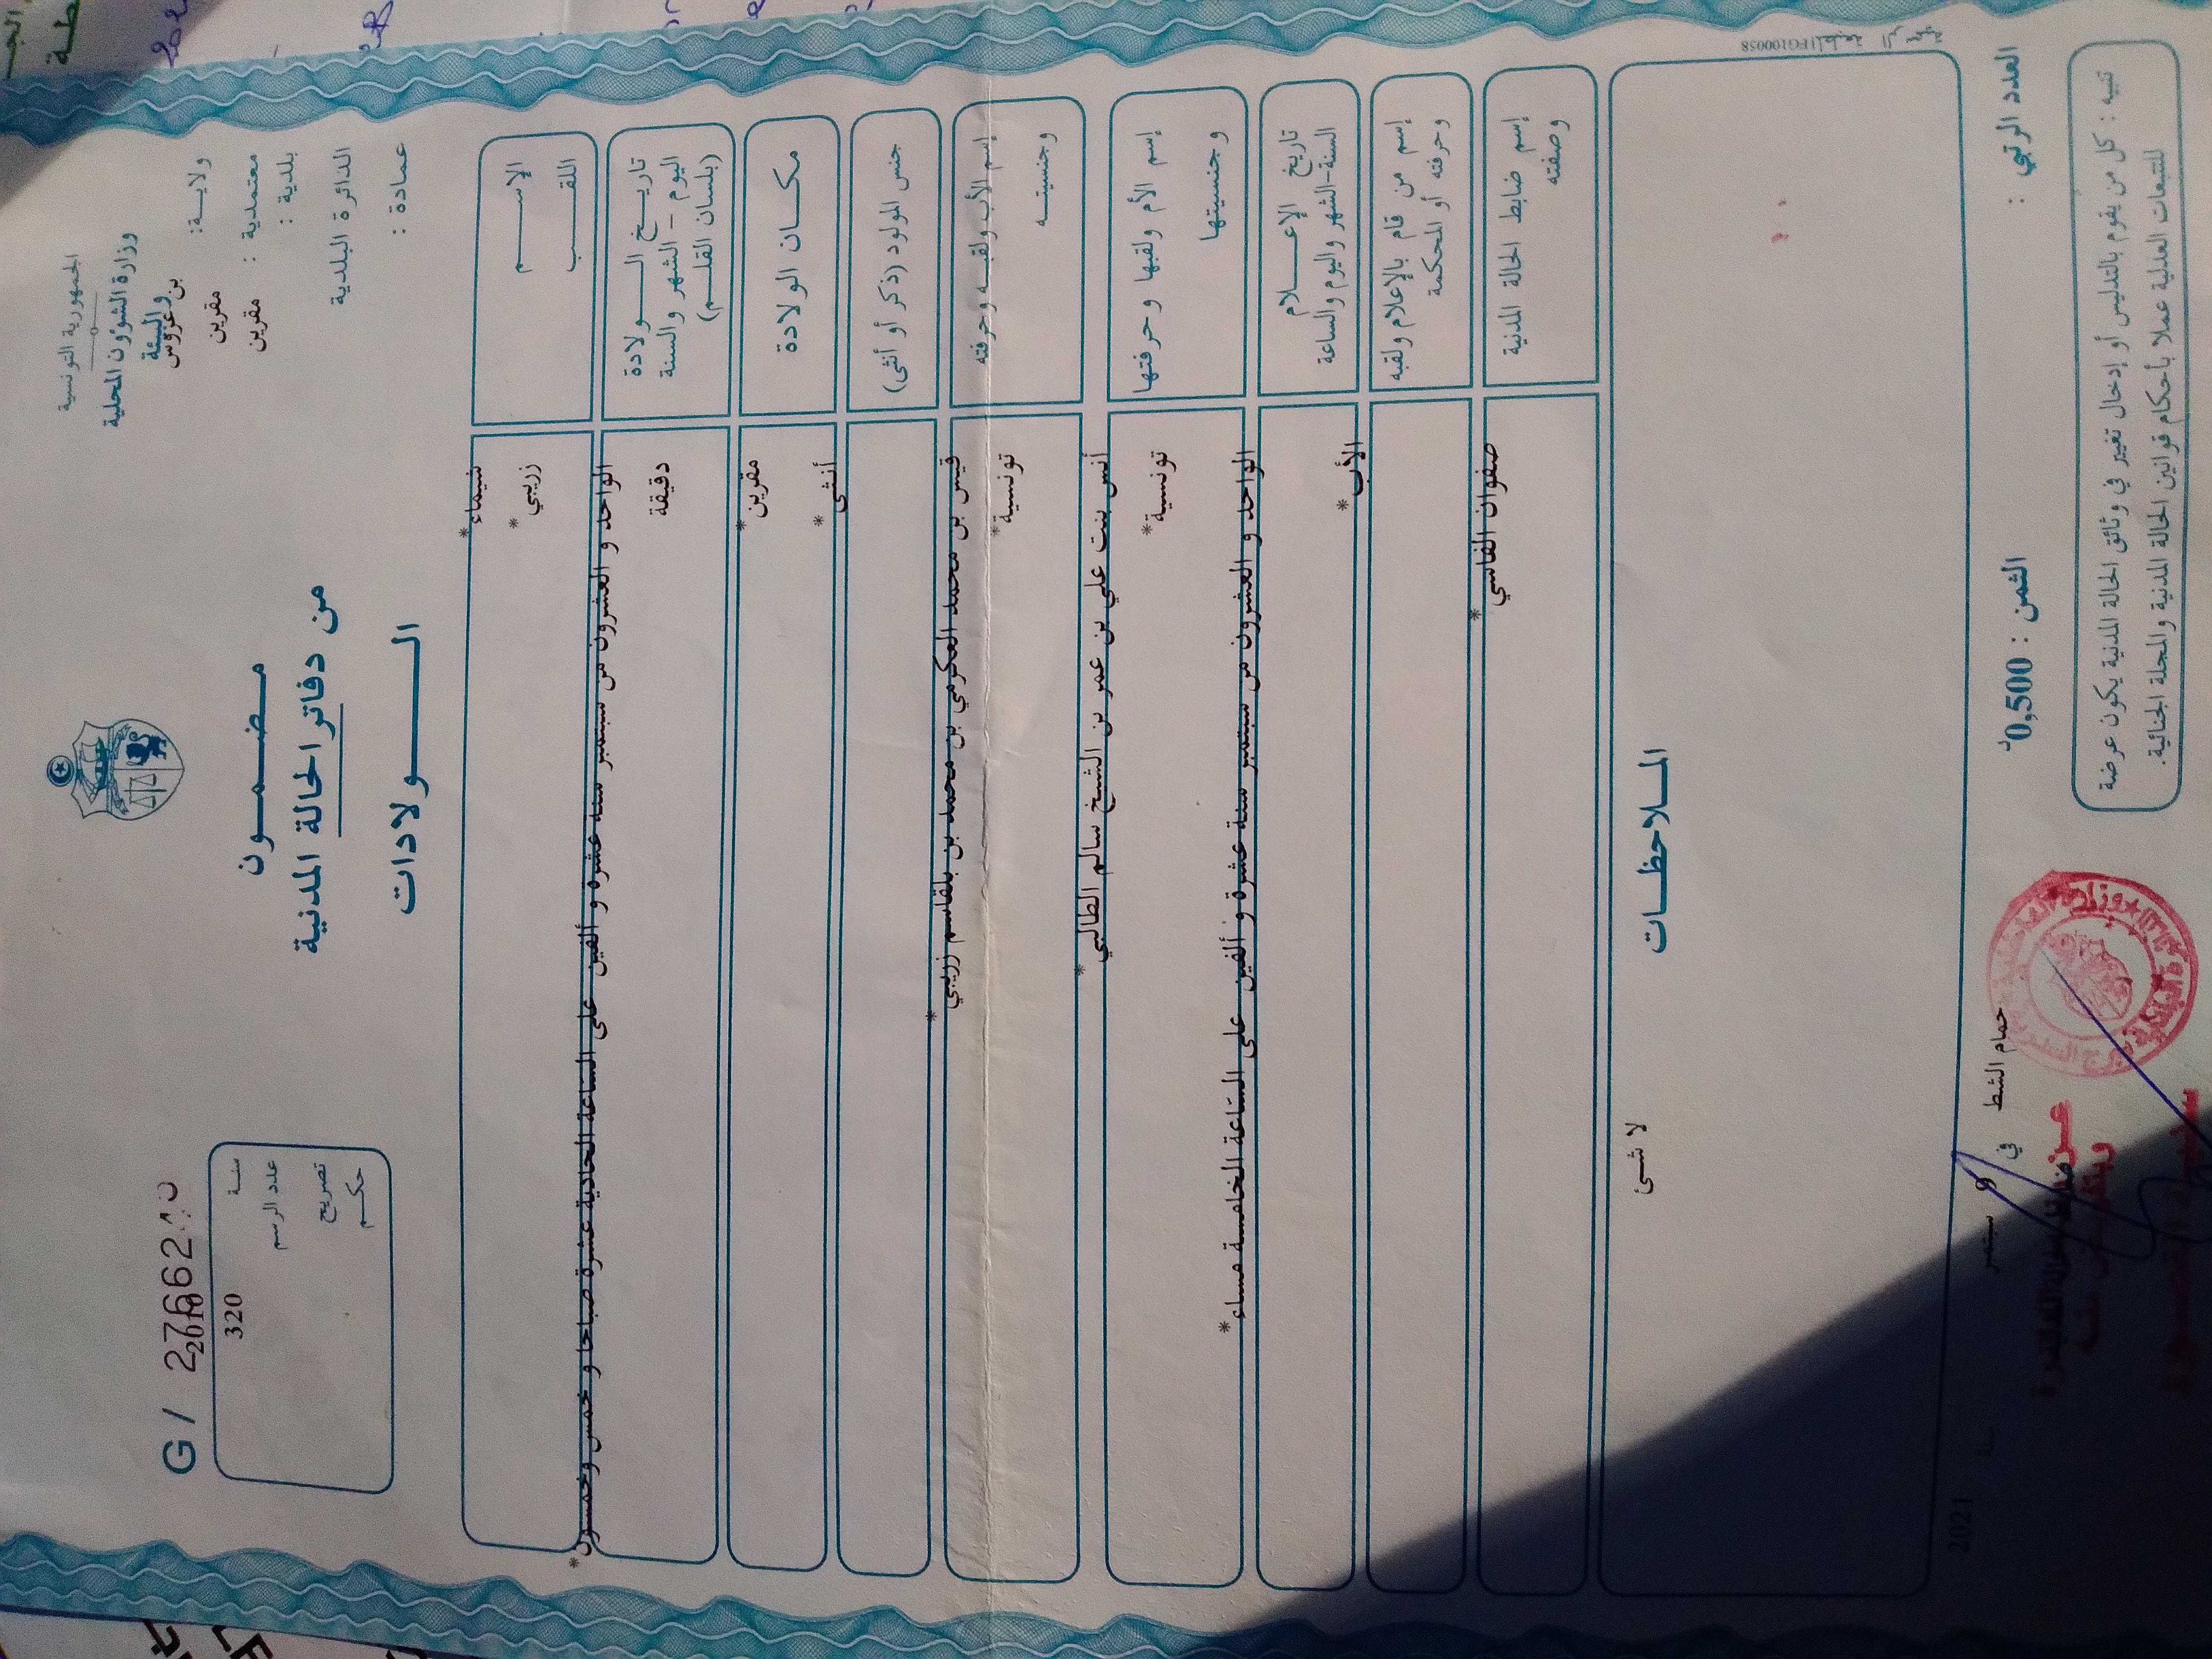 الجمهورية التونسية
وزارة الشؤون المحلية
والبيئة
ولاية: بن عروس
معتمدية : مقرين
بلدية : مقرين
الدائرة البلدية
عمادة :
مضمون
من دفاتر الحالة المدنية
الولادات
G / 27662
سنة 2010
عدد الرسم 320
تصريح
حكم
الإسم شيماء*
اللقب زريبي*
تاريخ الولادة
اليوم - الشهر والسنة
(بلسان القلم)
الواحد و العشرون من سبتمبر سنة عشرة و ألفين على الساعة الحادية عشرة صباحا و خمس وخمسون*
دقيقة
مكان الولادة مقرين*
جنس المولود (ذكر أو أنثى) أنثى*
إسم الأب ولقبه وحرفته قيس بن محمد العكرمي بن محمد بن بلقاسم زريبي*
وجنسيته تونسية*
إسم الأم ولقبها وحرفتها أنس بنت علي بن عمر بن الشيخ سالم الطالبي*
وجنسيتها تونسية*
تاريخ الإعلام
السنة-الشهر واليوم والساعة
الواحد و العشرون من سبتمبر سنة عشرة و ألفين على الساعة الخامسة مساء*
إسم من قام بالإعلام ولقبه
وحرفته أو المحكمة
الأب*
إسم ضابط الحالة المدنية
وصفته
صفوان الفاسي*
الملاحظات
لا شئ
المطبعة الرسمية FG100058
العدد الرتبي :
الثمن : 0,500د
حمام الشط في 9 سبتمبر 2021
تنبيه : كل من يقوم بالتدليس أو إدخال تغيير في وثائق الحالة المدنية يكون عرضة
للتتبعات العدلية عملا بأحكام قوانين الحالة المدنية والمجلة الجنائية.